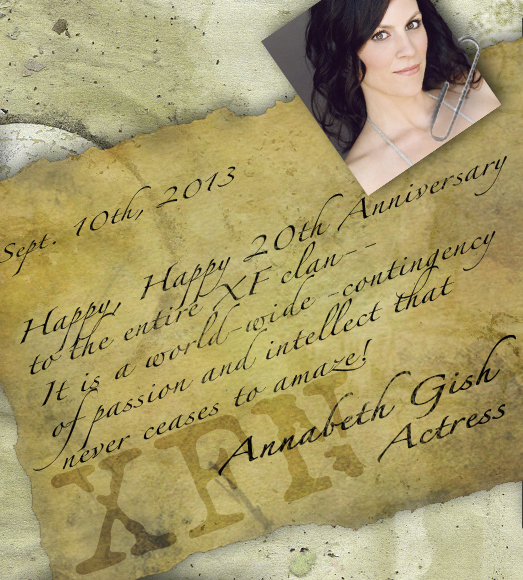 Sept. 10th, 2013
Happy, Happy 20th Anniversary
to the entire XF clan--
It is a world-wide -contingency
of passion and intellect that
never ceases to amaze!
Annabeth Gish
Actress
XFN